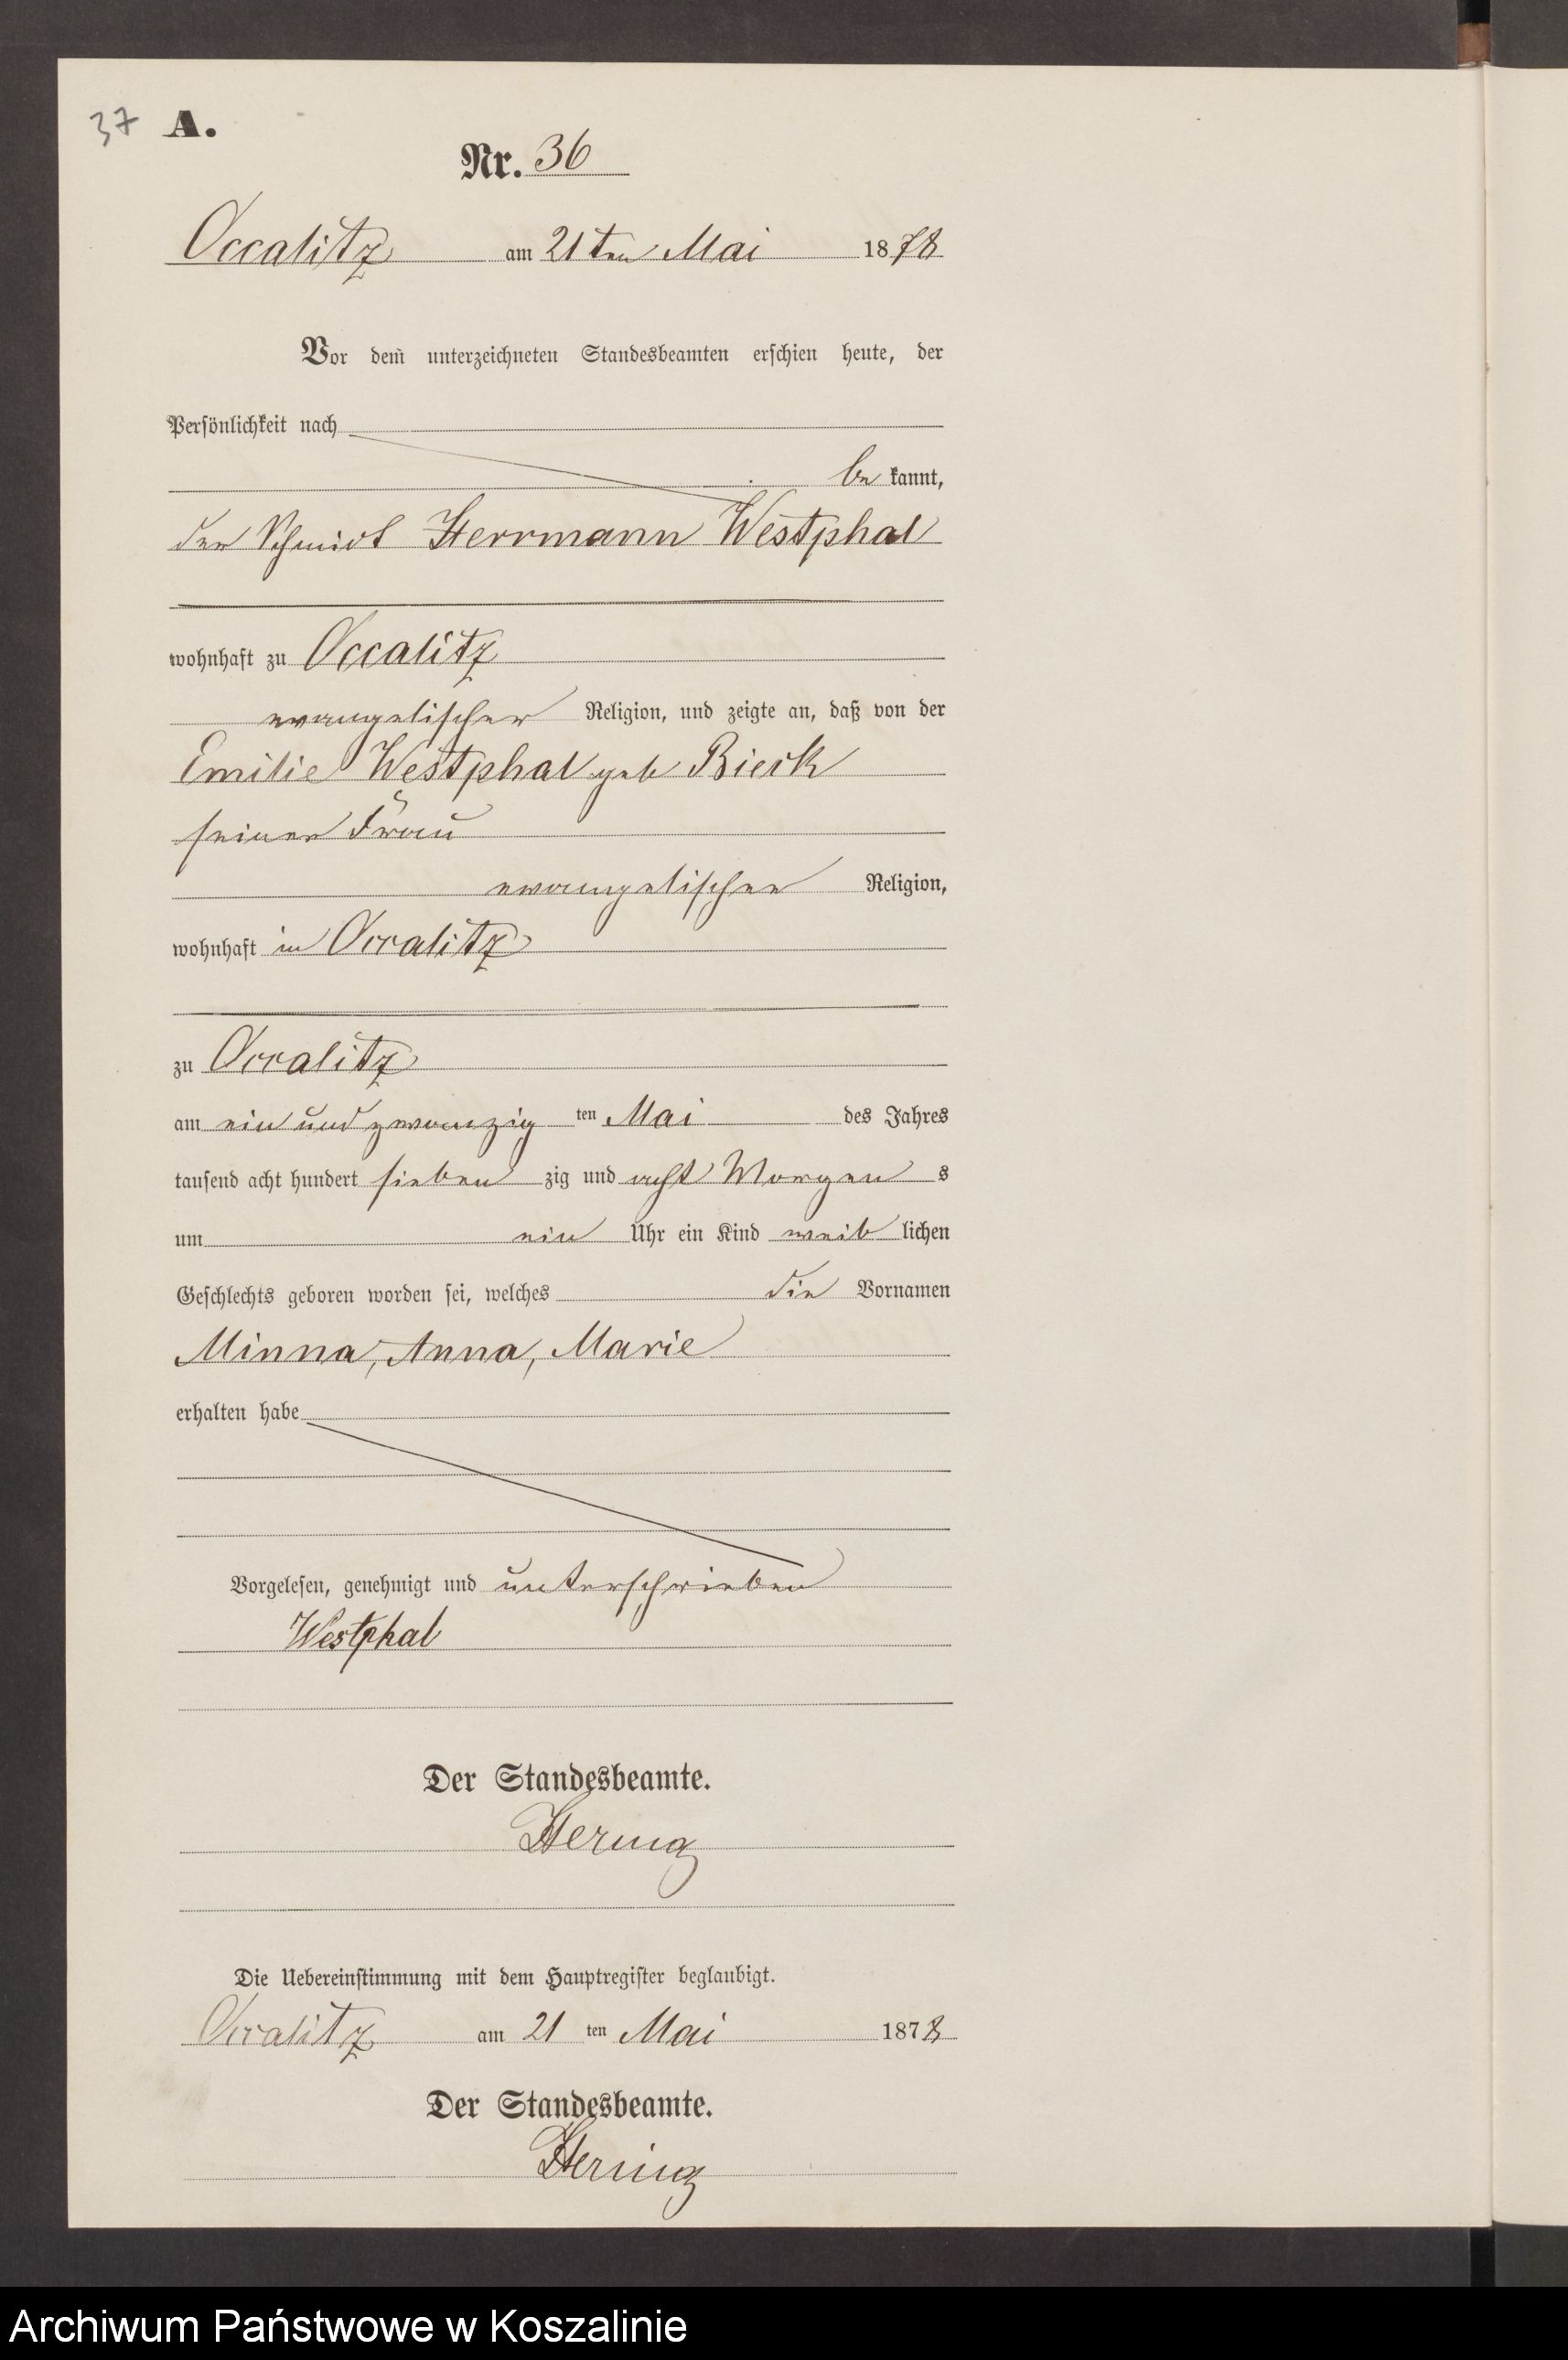 37 A.
Nr. 36
Occalitz am 21ten Mai 1878
Vor dem unterzeichneten Standesbeamten erschien heute, der
Persönlichkeit nach
be kannt,
der Schmidt Herrmann Westphal
wohnhaft zu Occalitz
evangelischer Religion, und zeigte an, daß von der
Emilie Westphal geb Bieck
seiner Frau
evangelischer Religion,
wohnhaft in Occalitz
zu Occalitz
am ein und zwanzig ten Mai des Jahres
tausend acht hundert sieben zig und acht Morgen s
um ein Uhr ein Kind weib lichen
Geschlechts geboren worden sei, welches die Vornamen
Minna, Anna, Marie
erhalten habe
Vorgelesen, genehmigt und unterschrieben
Westphal
Der Standesbeamte.
Hering
Die Uebereinstimmung mit dem Hauptregister beglaubigt.
Occalitz am 21 ten Mai 1878
Der Standesbeamte.
Hering
Archiwum Państwowe w Koszalinie